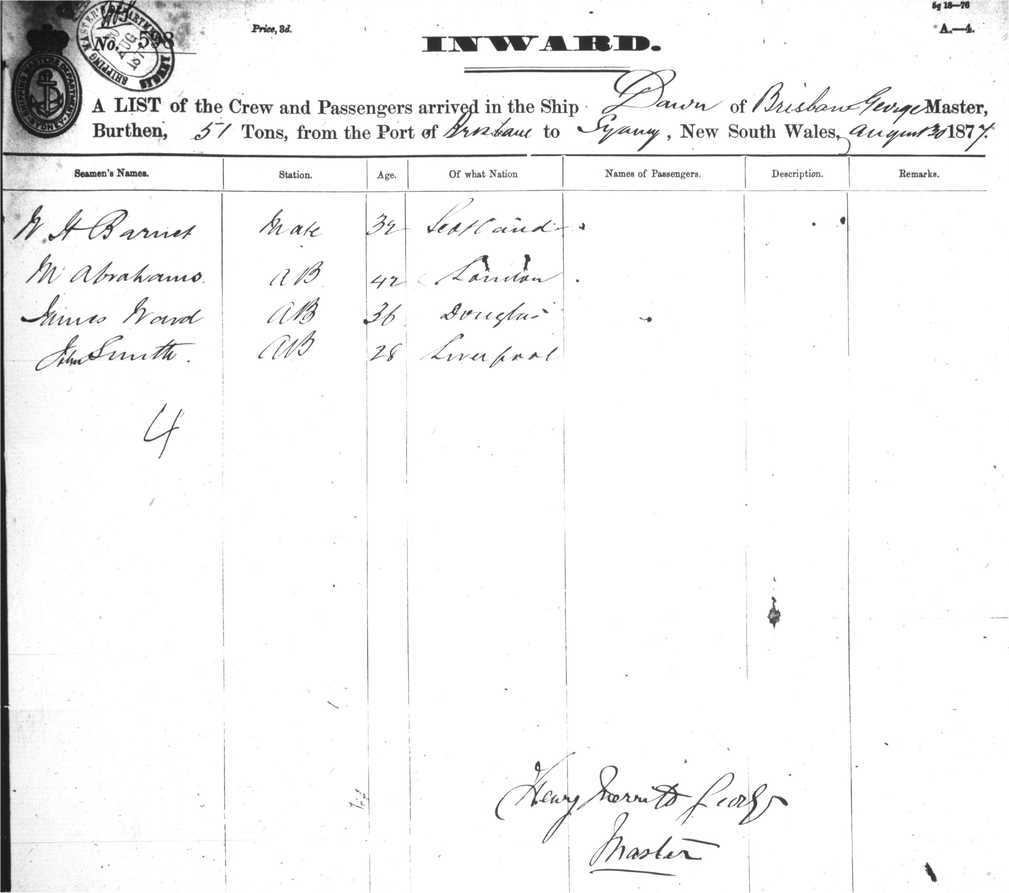 5g 18—76
Price, 3d.
No. 598
A.—4.
SHIPPING MASTER'S DEPARTMENT
AUG
SYDNEY
INWARD.
A LIST of the Crew and Passengers arrived in the Ship Dawn of Brisbane George Master,
Burthen, 51 Tons, from the Port of Brisbane to Sydney, New South Wales, August 30 1877.
Seamen's Names. Station. Age. Of what Nation Names of Passengers. Description. Remarks.
W. H Barnet Mate 32 Scotland
M Abrahams. AB 42 London
James Ward AB 36 Douglas
John Smith. AB 28 Liverpool
4
Henry Merritt George
Master